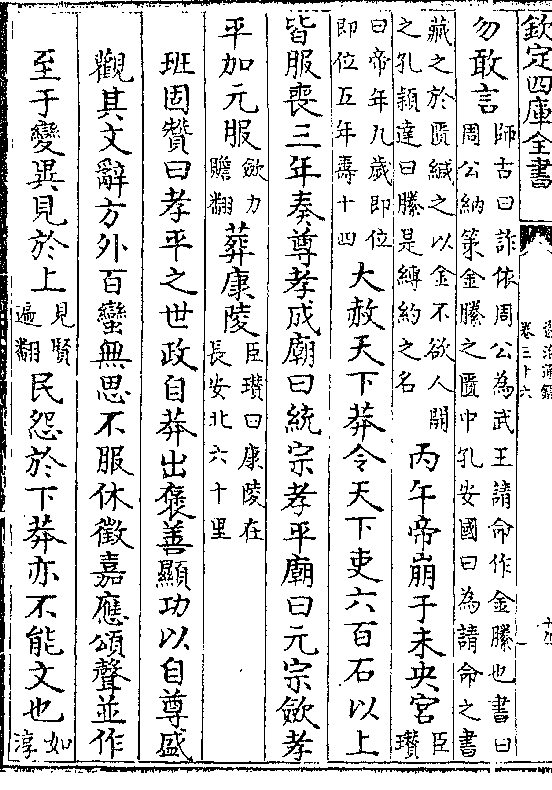 欽定四庫全書
資治通鑑
卷三十六
勿敢言師古曰詐依周公為武王請命作金縢也書曰周公納策金縢之匱中孔安國曰為請命之書
藏之於匱緘之以金不欲人開之孔穎達曰縢是縛約之名丙午帝崩于未央宮臣瓚
曰帝年九歲即位即位五年壽十四大赦天下莽令天下吏六百石以上
皆服喪三年奏尊孝成廟曰統宗孝平廟曰元宗斂孝
平加元服斂力贍翻葬康陵臣瓚曰康陵在長安北六十里
班固贊曰孝平之世政自莽出褒善顯功以自尊盛
觀其文辭方外百蠻無思不服休徵嘉應頌聲並作
至于變異見於上見賢遍翻民怨於下莽亦不能文也如淳